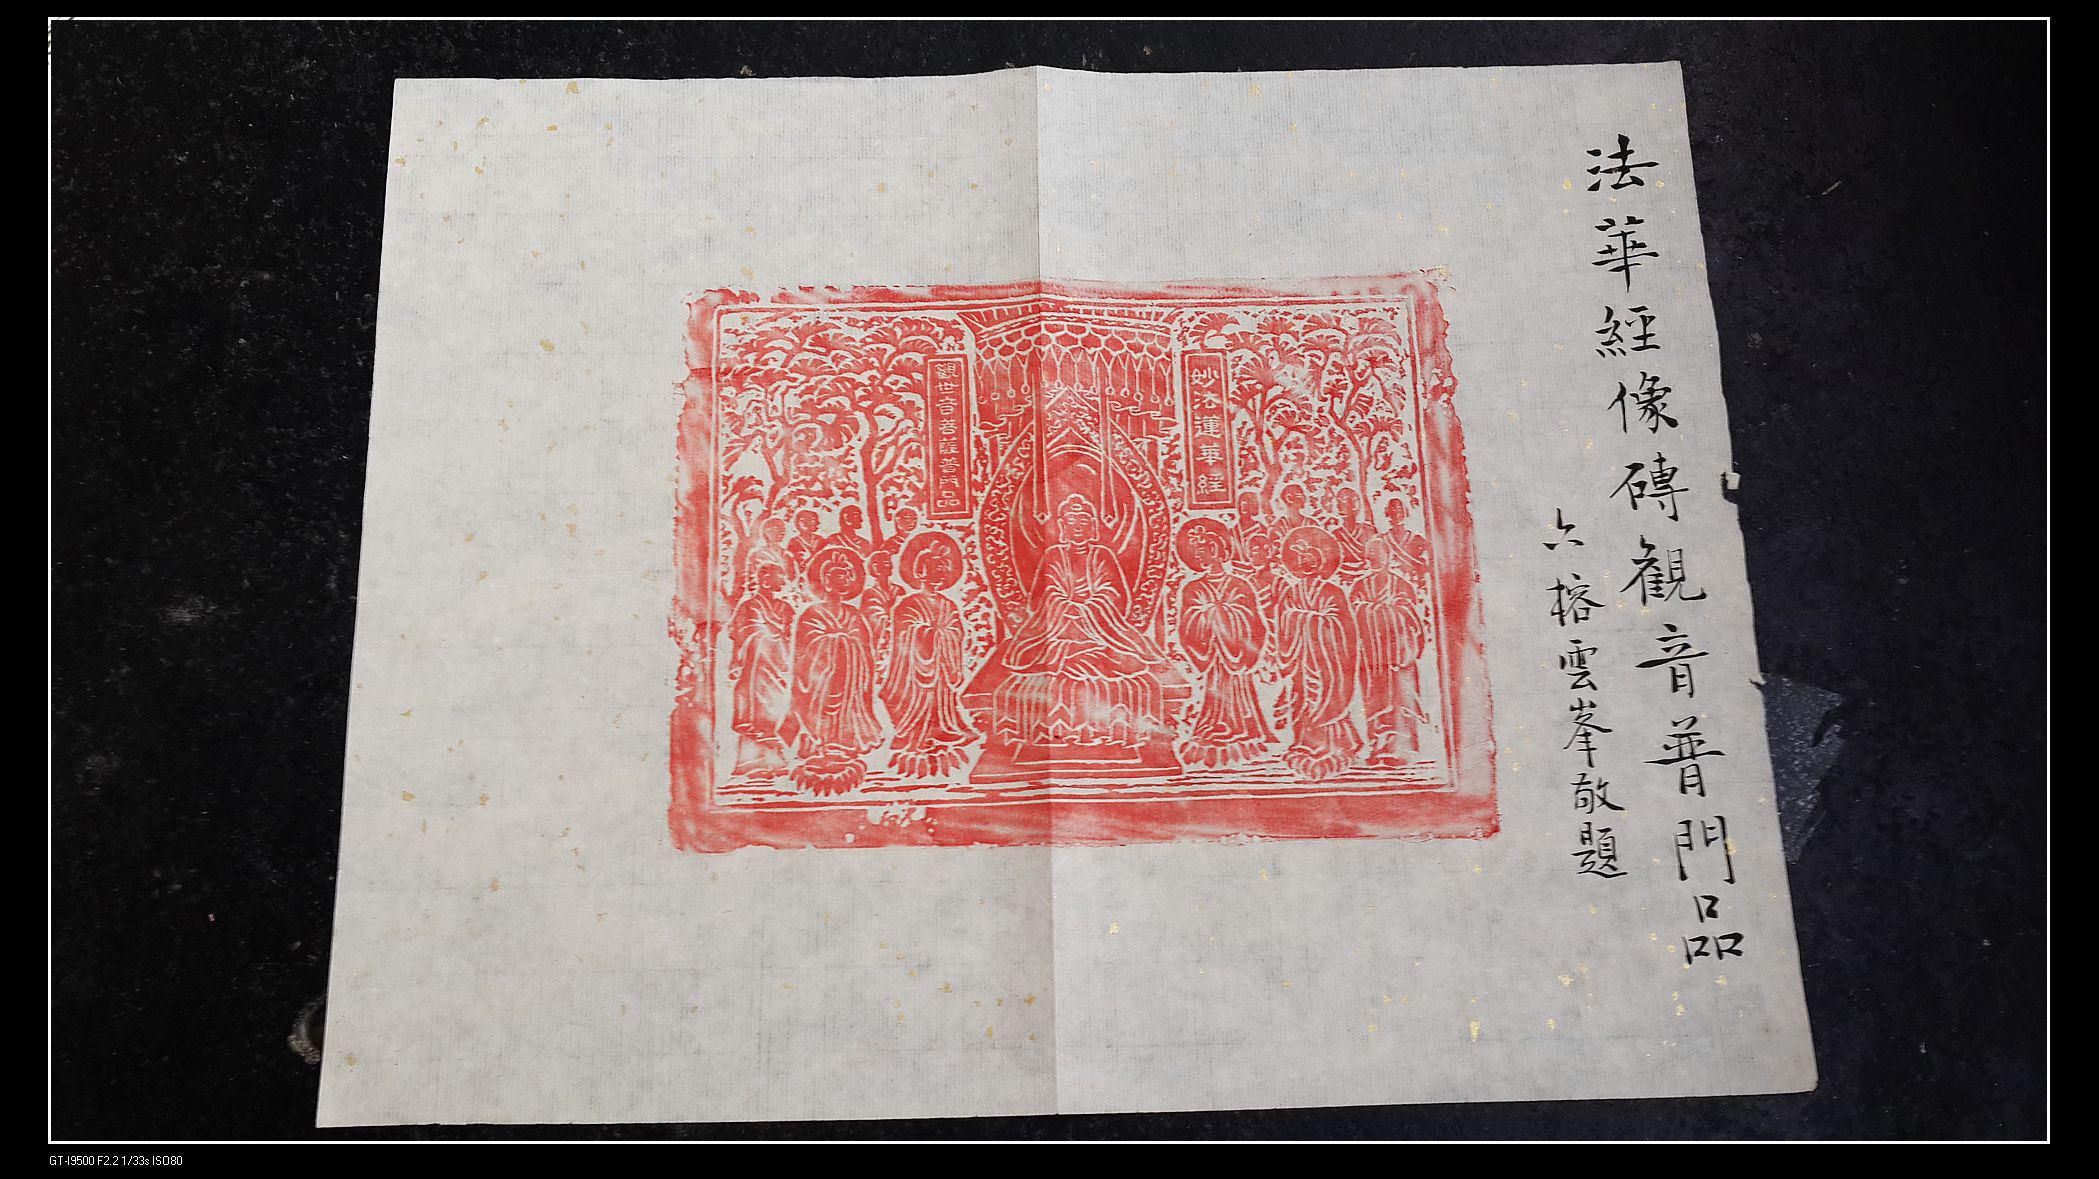 法華經像磚観音普門品
六榕雲峯敬題
妙法蓮華經
觀世音菩薩普門品
GT-I9500 F2.2 1/33s ISO80